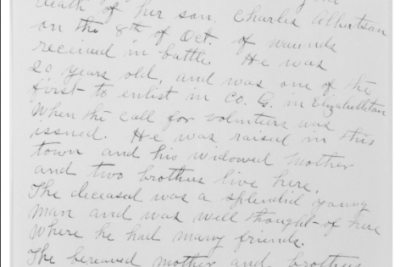 death of her son Charlie Albertson
on the 8th of Oct. of wounds
received in battle. He was
20 years old, and was one of the
first to enlist in Co. G. in Elizabethton
when the call for volunteers was
issued. He was raised in this
town and his widowed mother
and two brothers live here.
The deceased was a splendid young
man and was well thought of here
where he had many friends.
The bereaved mother and brothers